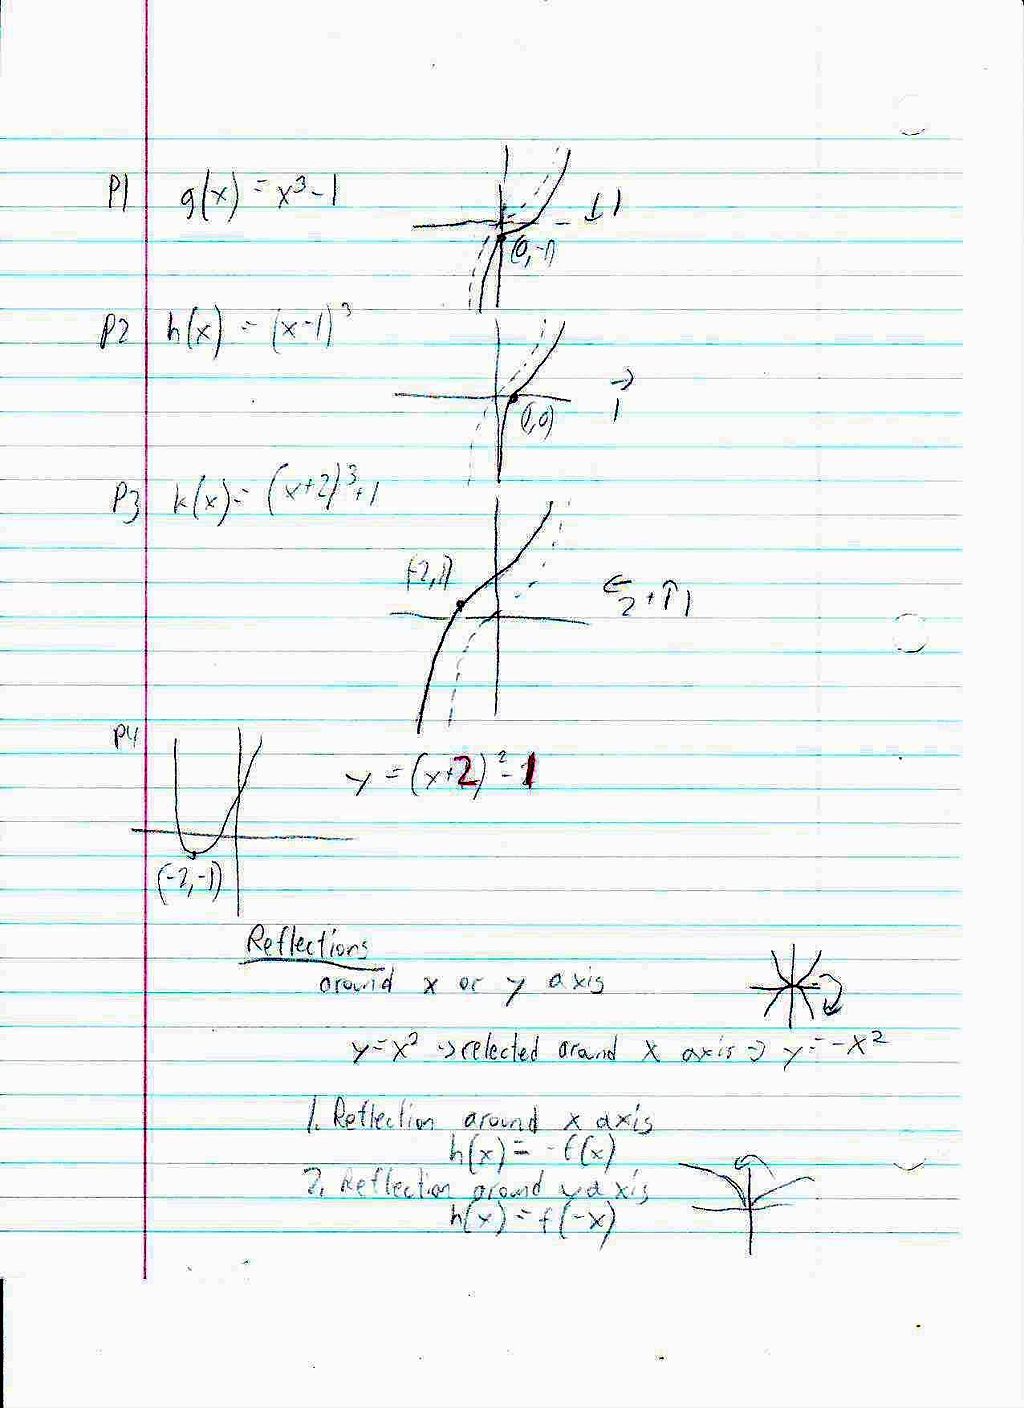 P1 g(x) = x³-1
↓1
(0,-1)
P2 h(x) = (x-1)³
→
1
(1,0)
P3 k(x) = (x+2)³+1
(-2,1)
←2 + ↑1
P4
y = (x+2)²-1
(-2,-1)
Reflections
around x or y axis
y=x² → relected around x axis → y=-x²
1. Reflection around x axis
h(x) = -f(x)
2. Reflection around y axis
h(x) = f(-x)